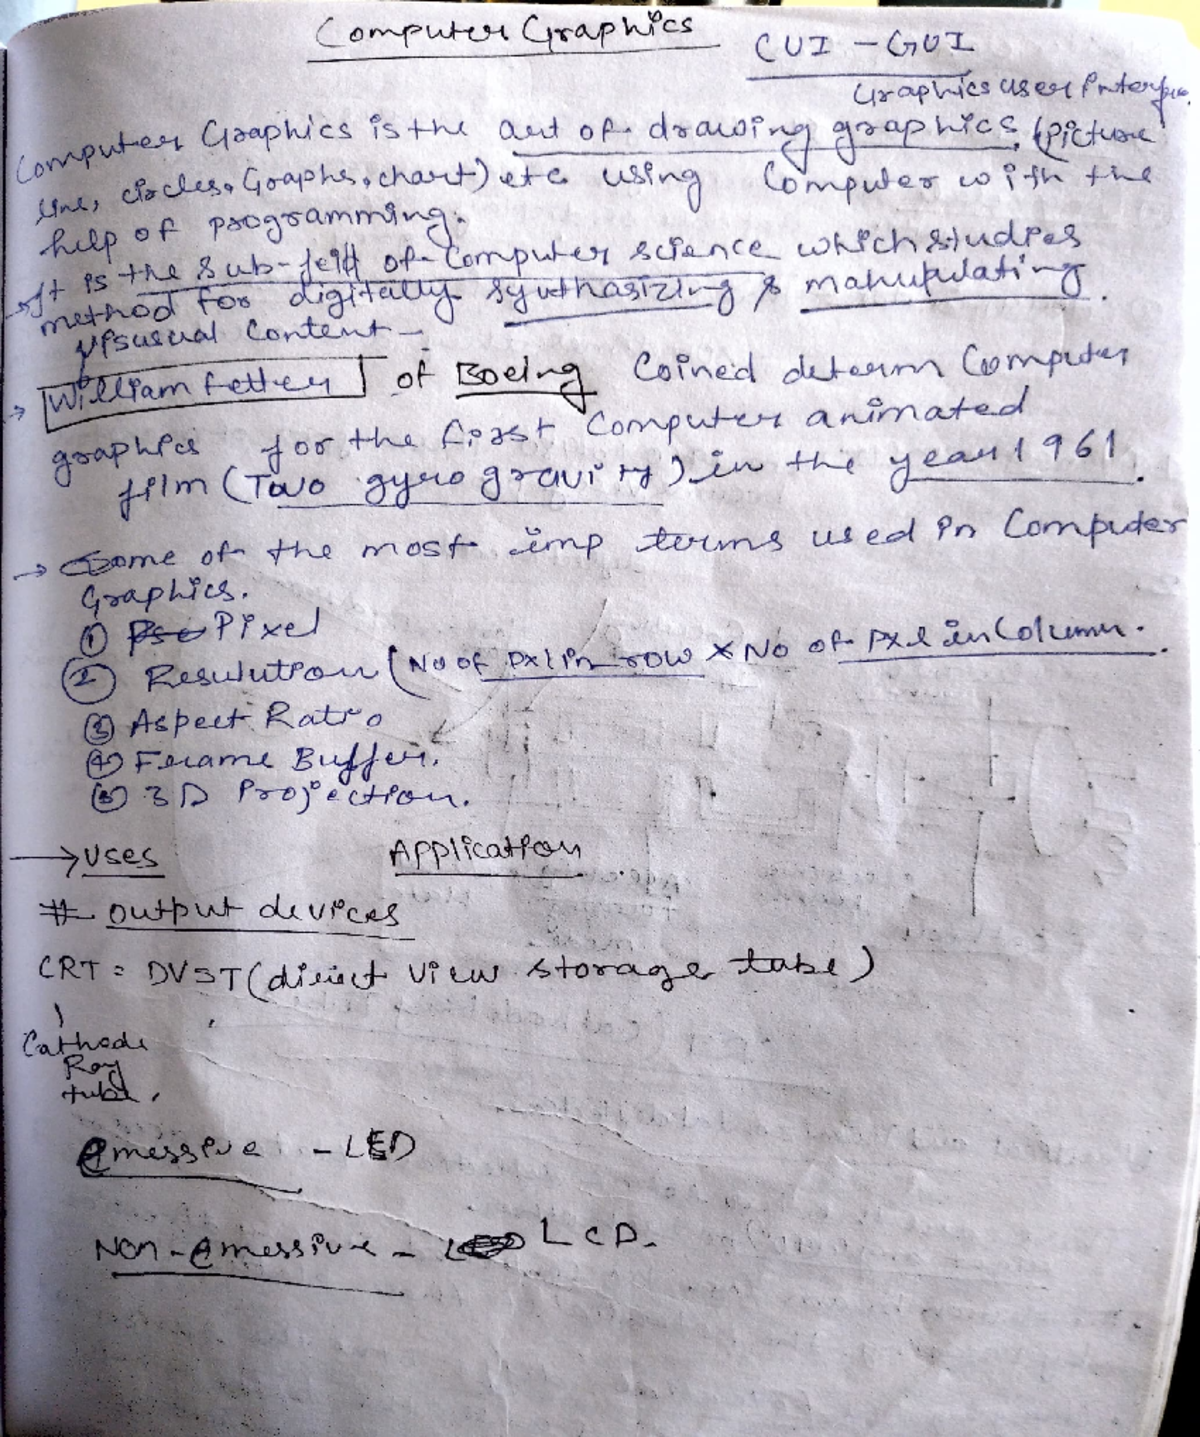 Computer Graphics
CUI - GUI
Graphics user interface.
Computer Graphics is the art of drawing graphics, (picture
line, circles, Graphs, chart) etc using Computer with the
help of programming.
→ It is the sub-feild of computer science which studies
method for digitally synthasizing & manupulating
visusual content -
→ William fetter of Boeing Coined determ Computer
graphics for the first Computer animated
film (Two gyro gravity) in the year 1961.
→ Some of the most imp terms used in Computer
Graphics.
① Pixel
② Resulution (No of pxl in row × No of pxl in Column.
③ Aspect Ratio
④ Frame Buffer.
⑤ 3D Projection.
→ Uses Application
# output devices
CRT = DVST (direct view storage tube)
Cathode
Ray
tube.
emessive - LED
Non-emessive - LCD.